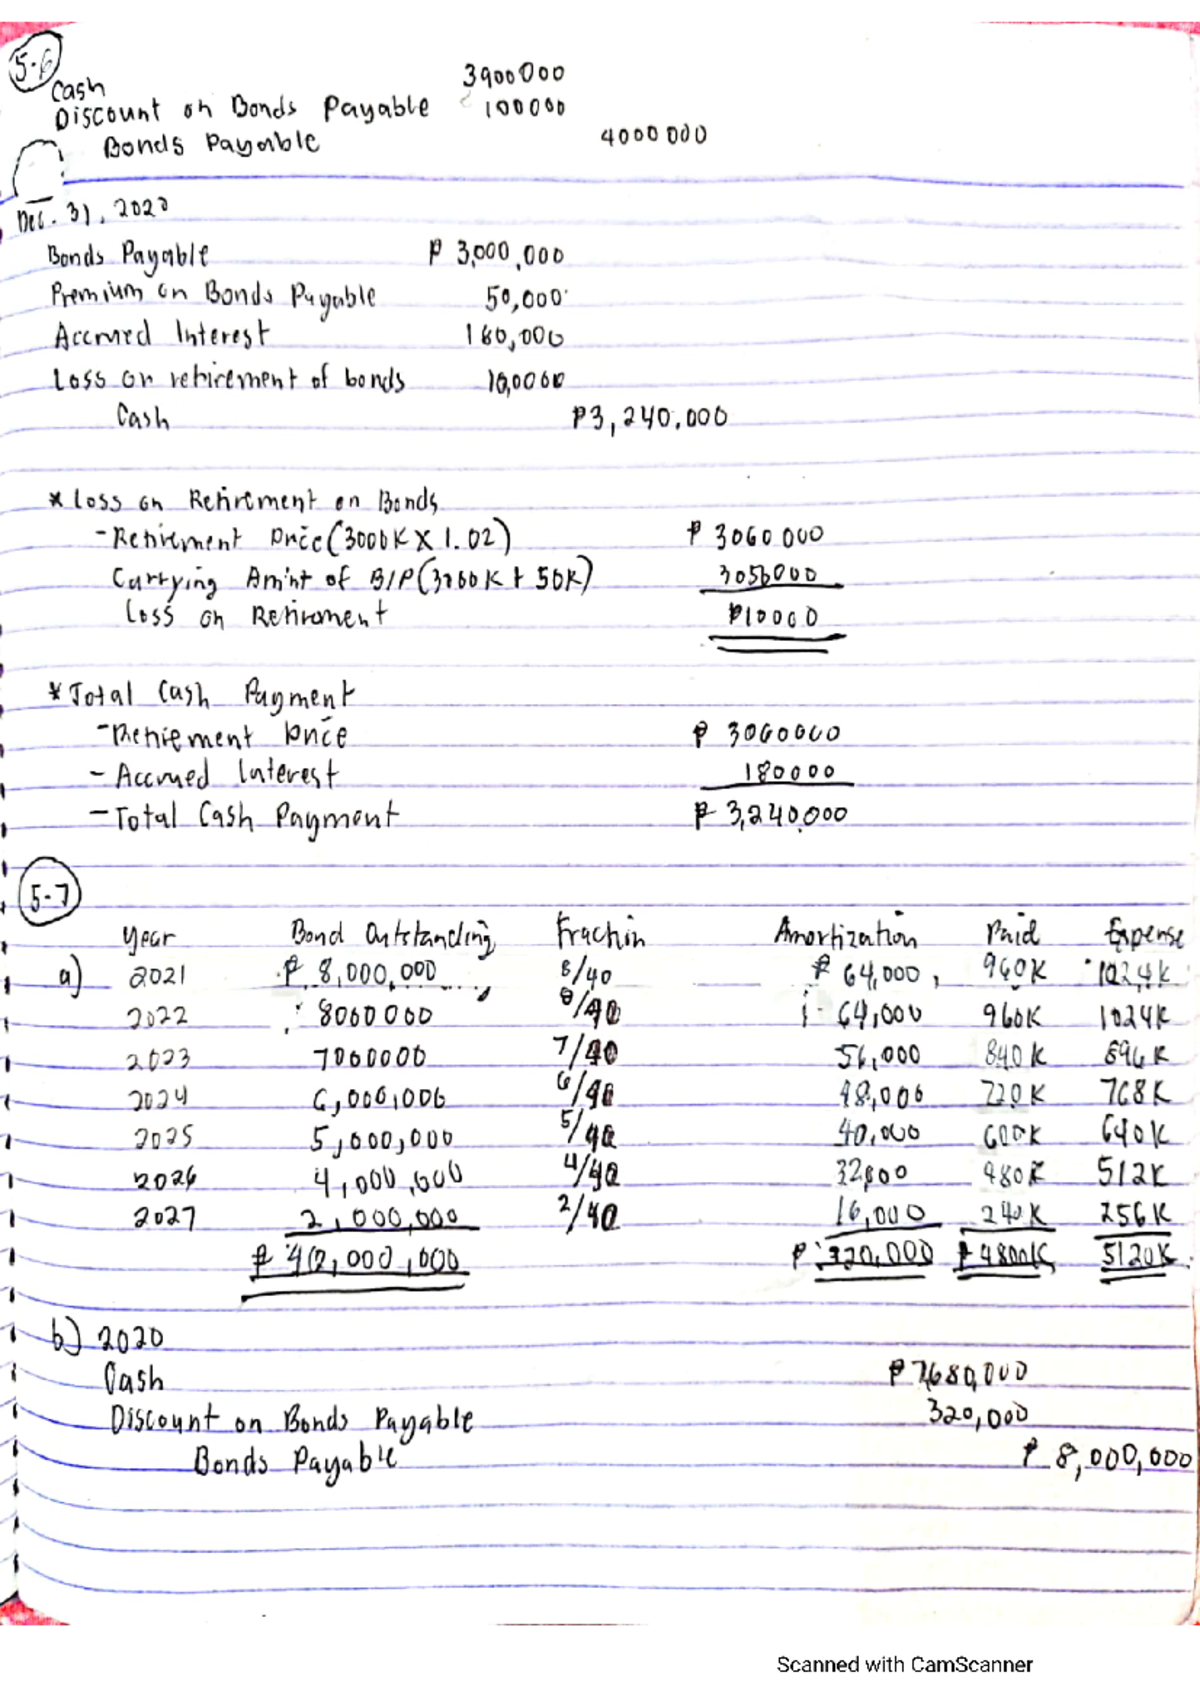 5-6
Cash 3900000
Discount on Bonds Payable 100000
Bonds Payable 4000000
Dec. 31, 2020
Bonds Payable ₱ 3,000,000
Premium on Bonds Payable 50,000
Accrued Interest 180,000
Loss on retirement of bonds 10,0000
Cash ₱3,240,000
* Loss on Retirement on Bonds
- Retirement Price (3000K X 1.02) ₱ 3060000
Carrying Am'nt of B/P (3000K + 50K) 3050000
Loss on Retirement ₱10000
* Total Cash Payment
- Retirement Price ₱ 3060000
- Accrued Interest 180000
- Total Cash Payment ₱ 3,240,000
5-7
Year Bond Outstanding Fraction Amortization Paid Expense
a) 2021 ₱ 8,000,000 8/40 ₱ 64,000 960K 1024K
2022 8000000 8/40 64,000 960K 1024K
2023 7000000 7/40 56,000 840K 896K
2024 6,000,000 6/40 48,000 720K 768K
2025 5,000,000 5/40 40,000 600K 640K
2026 4,000,000 4/40 32,000 480K 512K
2027 2,000,000 2/40 16,000 240K 256K
₱ 40,000,000 ₱ 320,000 ₱ 4800K 5120K
b) 2020
Cash ₱ 7,680,000
Discount on Bonds Payable 320,000
Bonds Payable ₱ 8,000,000
Scanned with CamScanner